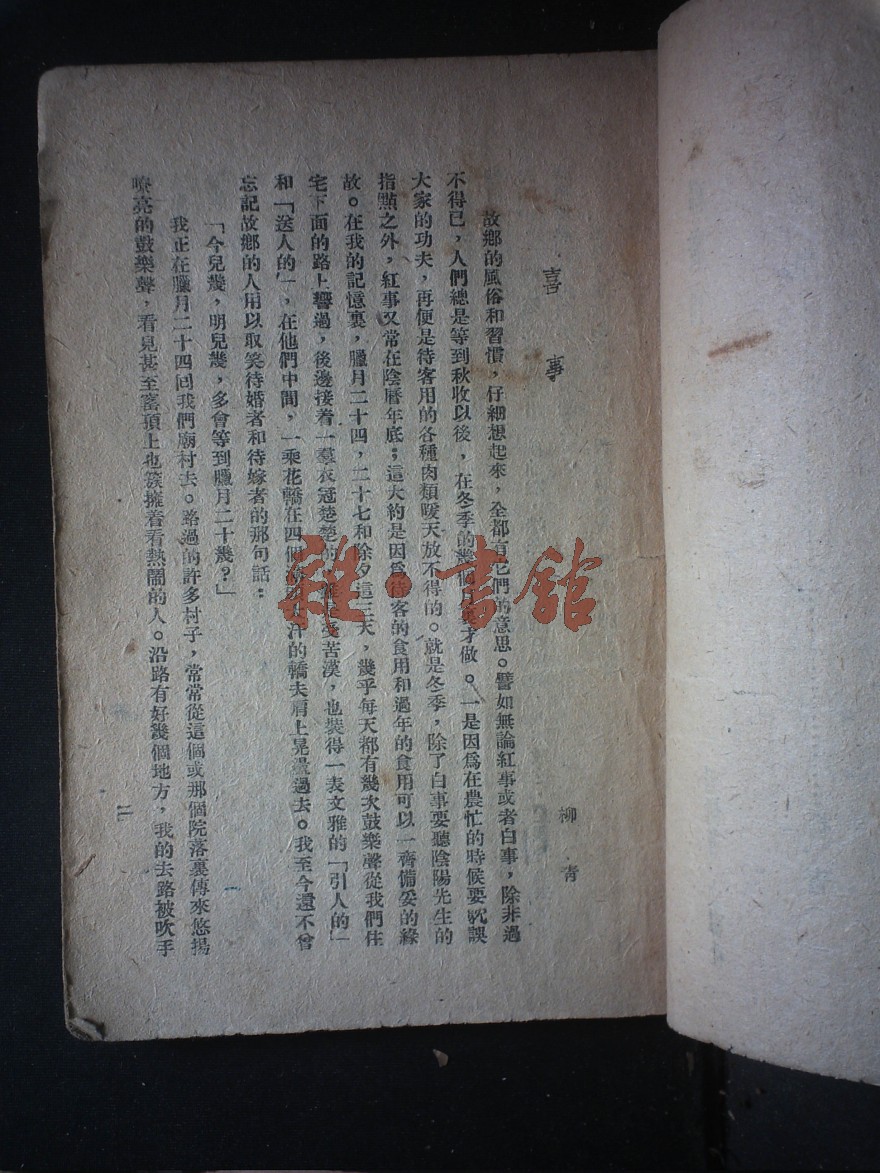 喜事
柳青
故鄉的風俗和習慣，仔細想起來，全都有它們的意思。譬如無論紅事或者白事，除非過
不得已，人們總是等到秋收以後，在冬季的幾個月才做。一是因爲在農忙的時候要躭誤
大家的功夫，再便是待客用的各種肉類暖天放不得的。就是冬季，除了白事要聽陰陽先生的
指點之外，紅事又常在陰曆年底；這大約是因爲待客的食用和過年的食用可以一齊備妥的緣
故。在我的記憶裏，臘月二十四，二十七和除夕這三天，幾乎每天都有幾次鼓樂聲從我們住
宅下面的路上響過，後邊接着一羣衣冠楚楚的，受苦漢，也裝得一表文雅的「引人的」
和「送人的」，在他們中間，一乘花轎在四個汗的轎夫肩上晃盪過去。我至今還不曾
忘記故鄉的人用以取笑待婚者和待嫁者的那句話：
「今兒幾，明兒幾，多會等到臘月二十幾？」
我正在臘月二十四回我們廟村去。路過的許多村子，常常從這個或那個院落裏傳來悠揚
嘹亮的鼓樂聲，看見甚至窰頂上也簇擁着看熱鬧的人。沿路有好幾個地方，我的去路被吹手
二
雜·書館